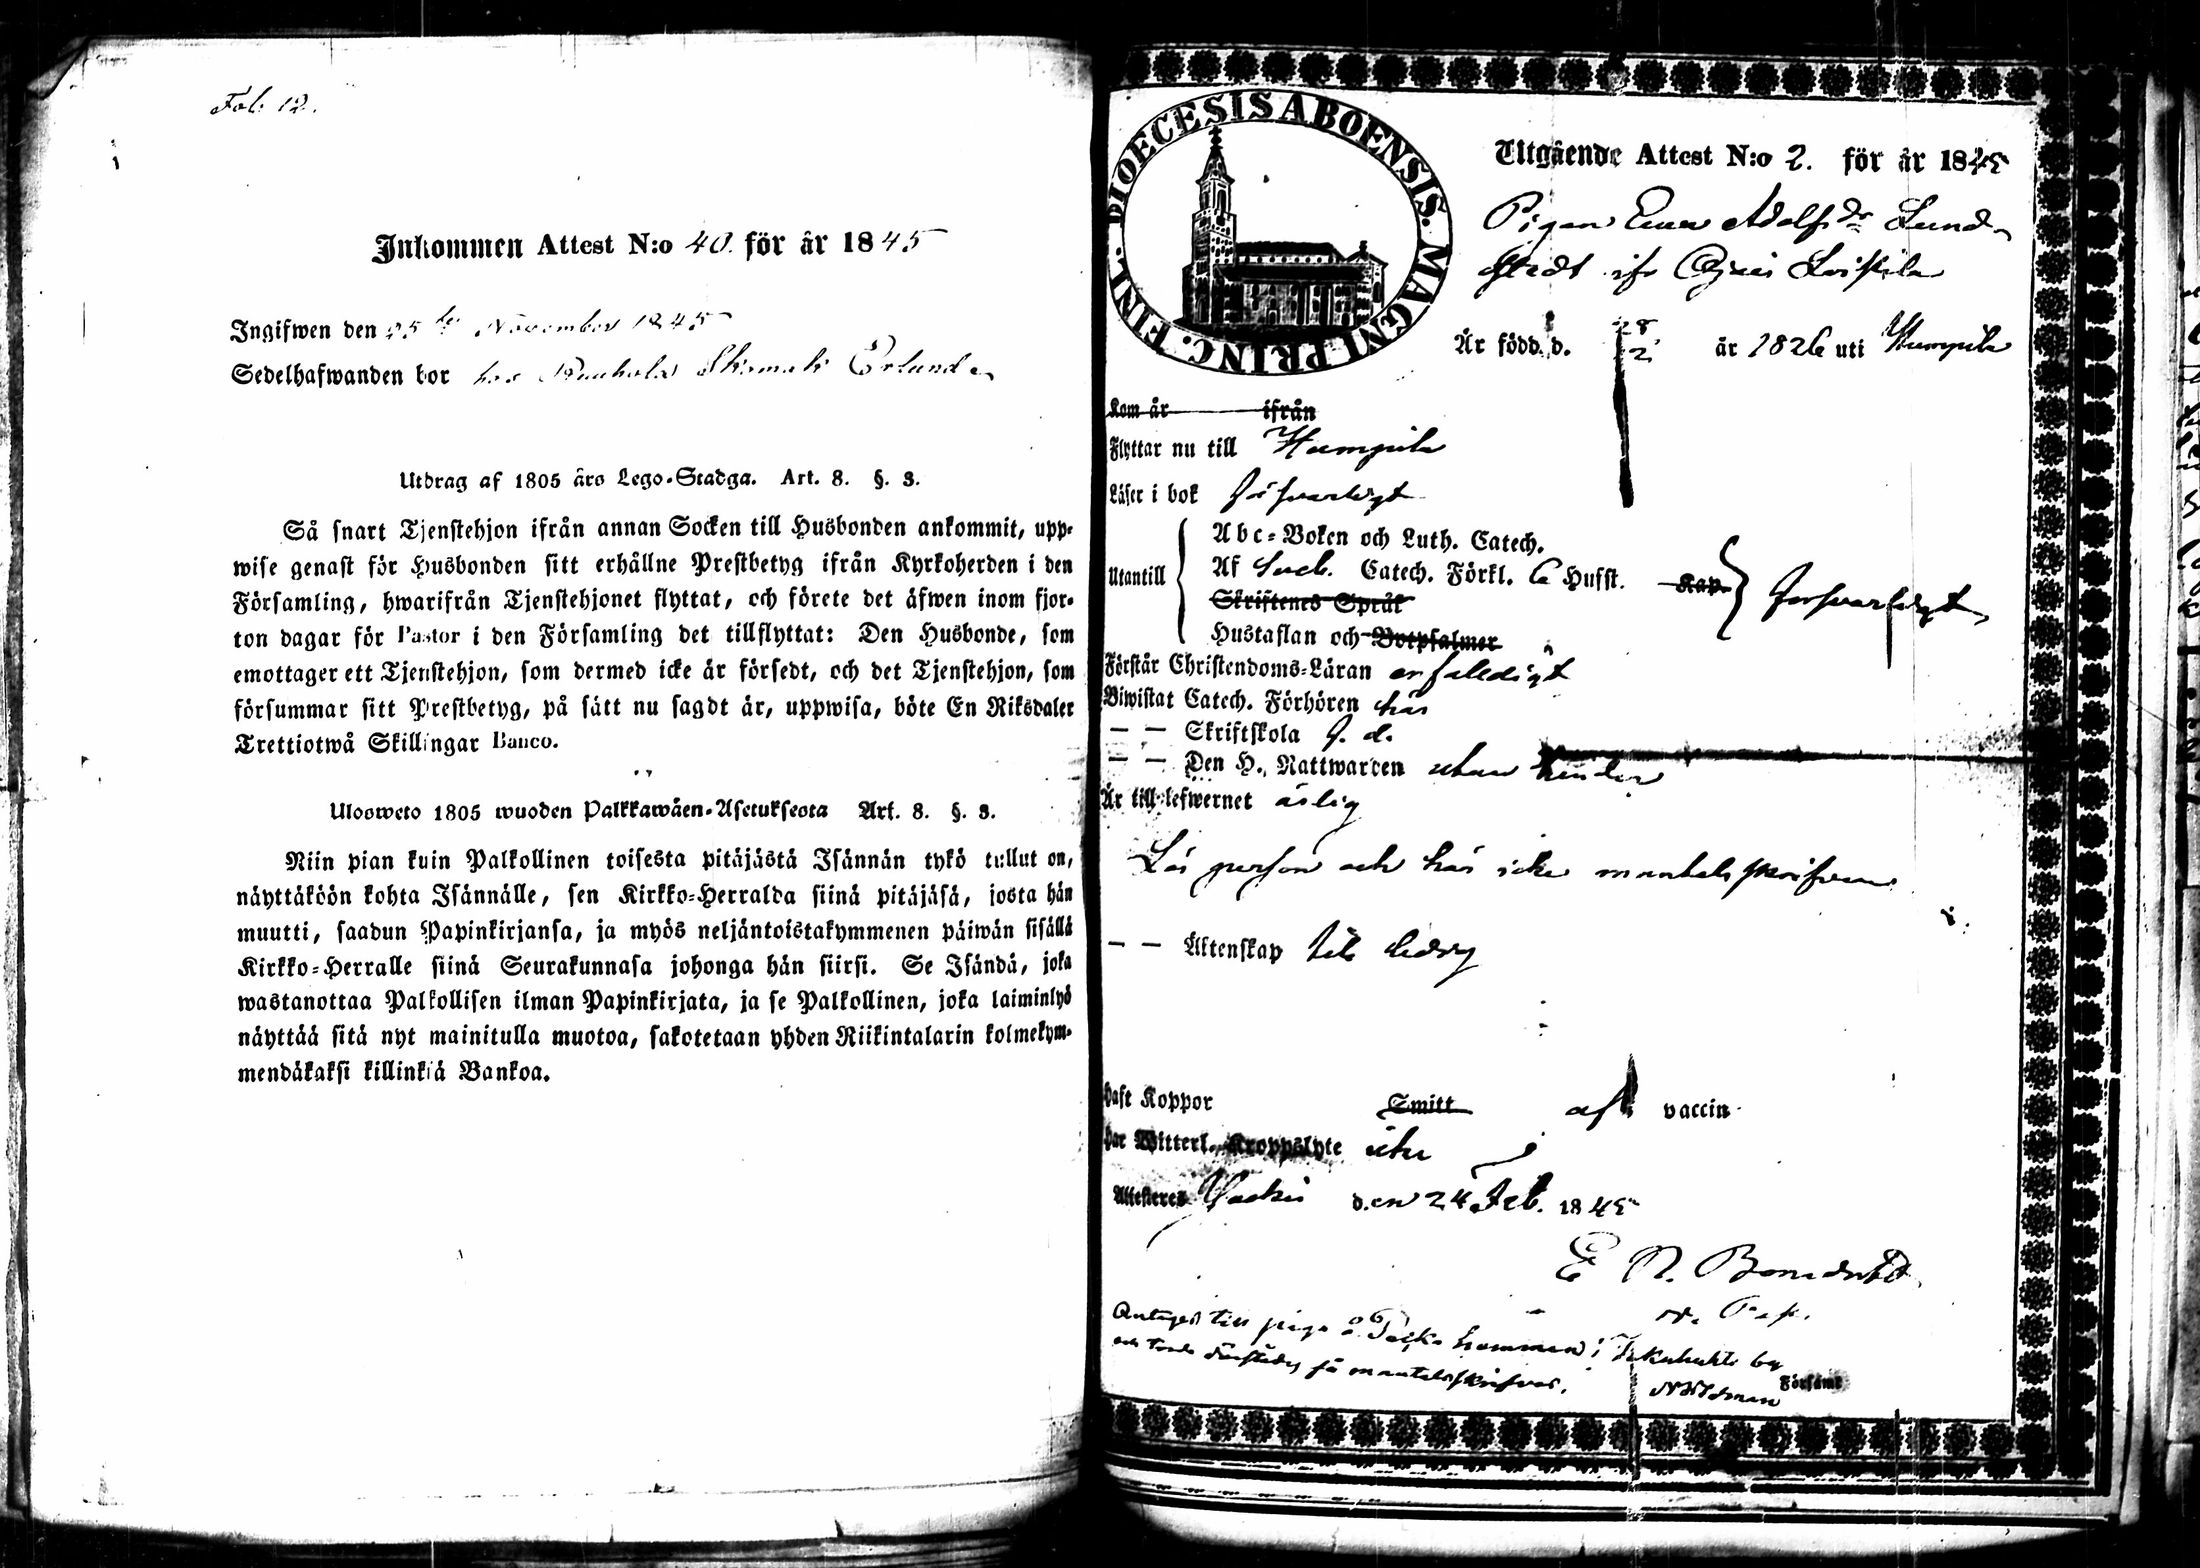 Fol. 12.
Inkommen Attest N:o 40. för år 1845
Ingifwen den 25te November 1845
Sedelhafwanden bor hos
Utdrag af 1805 års Lego-Stadga. Art. 8. §. 3.
Så snart Tjenstehjon ifrån annan Socken till Husbonden ankommit, upp-
wise genast för Husbonden sitt erhållne Prestbetyg ifrån Kyrkoherden i den
Församling, hwarifrån Tjenstehjonet flyttat, och förete det äfwen inom fjor-
ton dagar för Pastor i den Församling det tillflyttat: Den Husbonde, som
emottager ett Tjenstehjon, som dermed icke är försedt, och det Tjenstehjon, som
försummar sitt Prestbetyg, på sätt nu sagdt är, uppwisa, böte En Riksdaler
Trettiotwå Skillingar Banco.
Ulosweto 1805 wuoden Palkkawäen-Asetuksesta Art. 8. §. 3.
Niin pian kuin Palkollinen toisesta pitäjästä Isännän tykö tullut on,
näyttäköön kohta Isännälle, sen Kirkko-Herralda siinä pitäjäsä, josta hän
muutti, saadun Papinkirjansa, ja myös neljäntoistakymmenen päiwän sisällä
Kirkko-Herralle siinä Seurakunnasa johonga hän siirsi. Se Isändä, joka
wastanottaa Palkollisen ilman Papinkirjata, ja se Palkollinen, joka laiminlyö
näyttää sitä nyt mainitulla muotoa, sakotetaan yhden Riikintalarin kolmekym-
mendäkaksi killinkiä Bankoa.
DIOECESIS ABOENSIS. MAGNI PRINC. FINL.
Utgående Attest N:o 2. för år 1845
Pigan Eva Adolfsdr Lund-
stedt ifr
Är född d. 28/2 år 1826 uti Humpila
Kom år ifrån
Flyttar nu till Humpila
Läser i bok försvarligt
Utantill
Abc-Boken och Luth. Catech.
Af Sveb. Catech. Förkl. 6 Hufst. Kap försvarligt
Skriftenes Språk
Hustaflan och Botpsalmer
Förstår Christendoms-Läran enfaldigt
Biwistat Catech. Förhören här
— — Skriftskola d.
— — Den H. Nattwarden utan hinder
Är till lefwernet ärlig
Lös person och här icke mantalsskrifven
— — Äktenskap till ledig
Haft Koppor Smitt af vaccin
Har Witterl. Kroppslyte icke
Attesteres den 24 Feb. 1845
E N.
Antages till piga å hemman i by
och torde därstädes få mantalsskrifvas.
Försämt